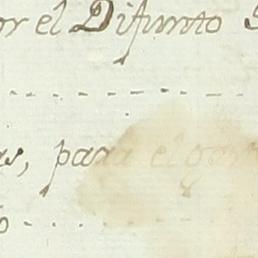 or el Difunto
as, para el go
o